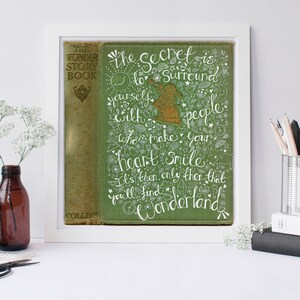 THE
WONDER
STORY
BOOK
COLLINS
the Secret is
to surround
yourself
with people
who make your
heart smile
it's then, only then that
you'll find
Wonderland